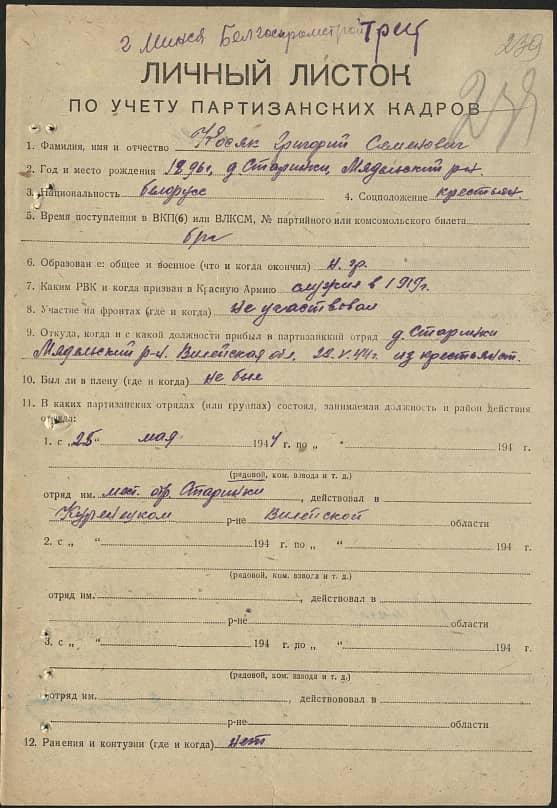 г Минск Белгоспромстрой Трест
239
ЛИЧНЫЙ ЛИСТОК
ПО УЧЕТУ ПАРТИЗАНСКИХ КАДРОВ
1. Фамилия, имя и отчество Григорий Семенович
2. Год и место рождения 1896г, д. Старинки, Мядельский р-н.
3. Национальность белорусс 4. Соцположение крестьян.
5. Время поступления в ВКП(б) или ВЛКСМ, № партийного или комсомольского билета
б/п
6. Образование: общее и военное (что и когда окончил) н. гр.
7. Каким РВК и когда призван в Красную Армию служил в 1919г.
8. Участие на фронтах (где и когда) не участвовал
9. Откуда, когда и с какой должности прибыл в партизанский отряд д. Старинки
Мядельский р-н. Вилейская обл. 22.V.44г. из крестьянст.
10. Был ли в плену (где и когда) не был
11. В каких партизанских отрядах (или группах) состоял, занимаемая должность и район действия
отряда:
1. с „25" мая 1944 г. по „ " 194 г.
(рядовой, ком. взвода и т. д.)
отряд им. мест. отр. Старинки, действовал в
Куренецком р-не Вилейской области
2. с „ " 194 г. по „ " 194 г.
(рядовой, ком. взвода и т. д.)
отряд им. , действовал в
р-не области
3. с „ " 194 г. по „ " 194 г.
(рядовой, ком. взвода и т. д.)
отряд им. , действовал в
р-не области
12. Ранения и контузии (где и когда) нет